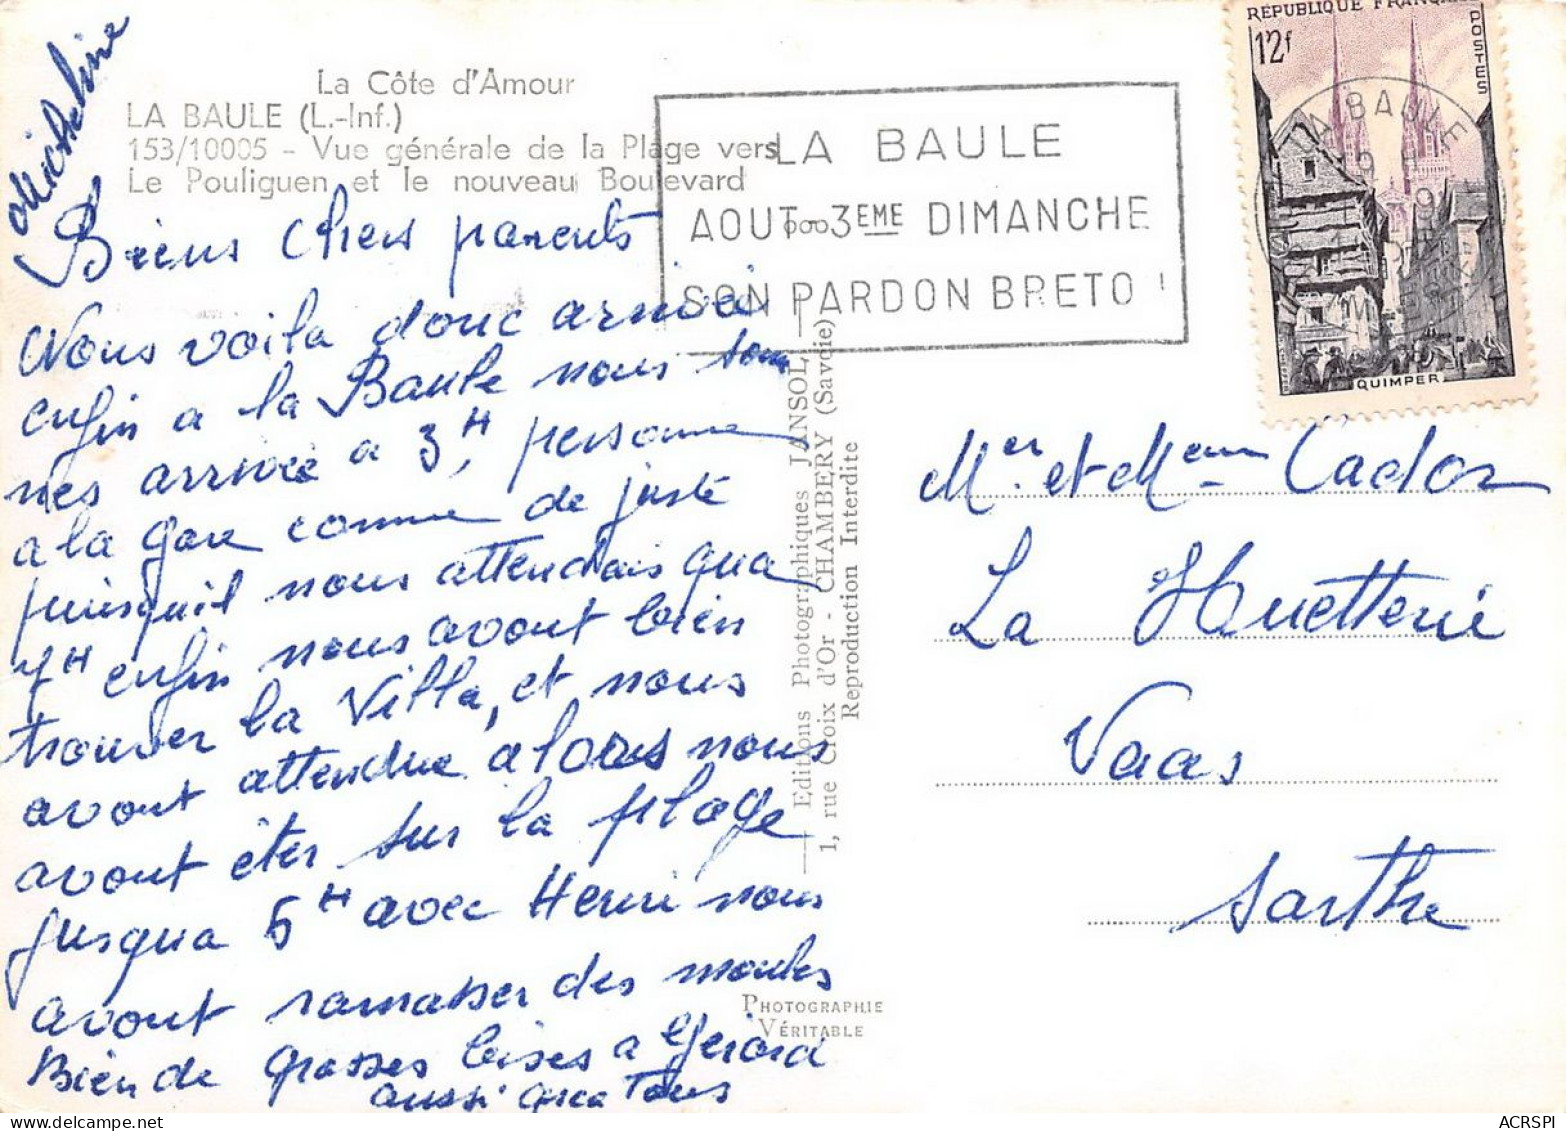 Micheline
La Côte d'Amour
LA BAULE (L.-Inf.)
153/10005 - Vue générale de la Plage vers
Le Pouliguen et le nouveau Boulevard
Biens chers parents
Nous voila donc arrivé
enfin a la Baule nous som
mes arrivée a 3H, personne
a la gare comme de juste
puisquil nous attendais qua
4H enfin nous avont bien
trouver la Villa, et nous
avont attendue alors nous
avont êter sur la plage
jusqua 5H avec Henri nous
avont ramasser des moules
Bien de grosses bises a Gérard
aussi qua Tous
LA BAULE
AOUT 3EME DIMANCHE
SON PARDON BRETO
RÉPUBLIQUE FRANÇAISE
POSTES
12f
LA BAULE
QUIMPER
Editions Photographiques JANSOL
1, rue Croix d'Or - CHAMBERY (Savoie)
Reproduction Interdite
PHOTOGRAPHIE
VÉRITABLE
Mer et Mem Cador
La Huetterie
Vaas
Sarthe
ACRSPI